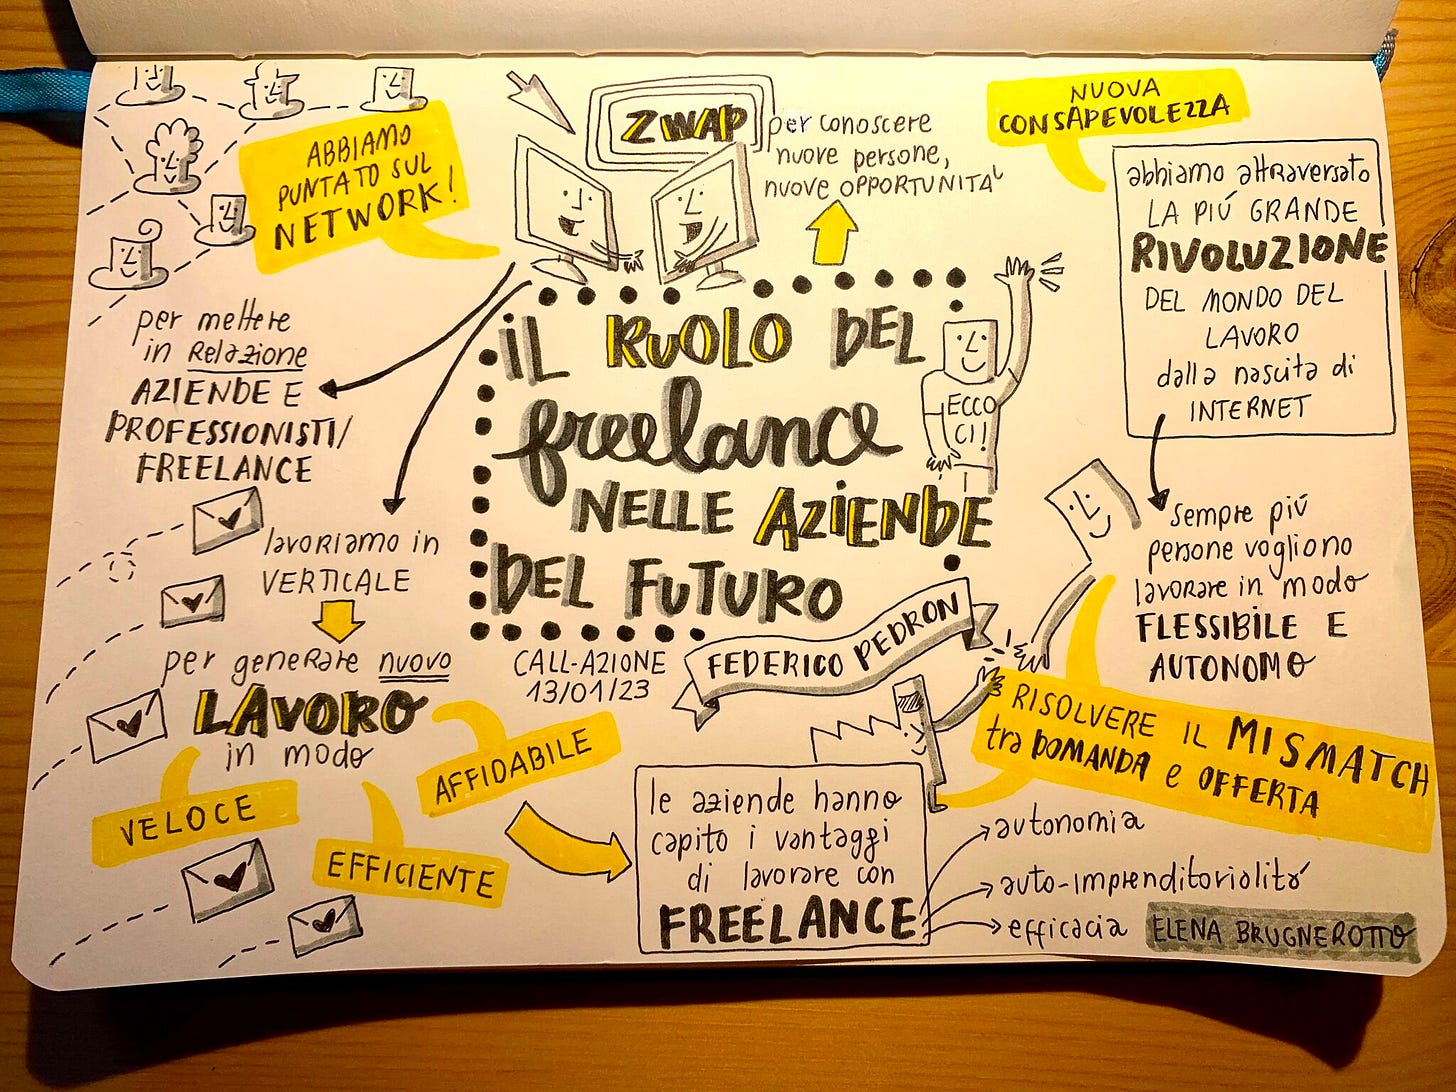 ABBIAMO
PUNTATO SUL
NETWORK!
ZWAP
per conoscere
nuove persone,
nuove OPPORTUNITA'
NUOVA
CONSAPEVOLEZZA
abbiamo attraversato
LA PIÚ GRANDE
RIVOLUZIONE
DEL MONDO DEL
LAVORO
dalla nascita di
INTERNET
per mettere
in Relazione
AZIENDE E
PROFESSIONISTI/
FREELANCE
IL RUOLO DEL
freelance
NELLE AZIENDE
DEL FUTURO
ECCO
CI!
CALL-AZIONE
13/01/23
FEDERICO PEDRON
lavoriamo in
VERTICALE
per generare nuovo
LAVORO
in modo
VELOCE
EFFICIENTE
AFFIDABILE
sempre piú
persone vogliono
lavorare in modo
FLESSIBILE E
AUTONOMO
RISOLVERE IL MISMATCH
tra DOMANDA e OFFERTA
le aziende hanno
capito i vantaggi
di lavorare con
FREELANCE
autonomia
auto-imprenditorialitá
efficacia
ELENA BRUGNEROTTO